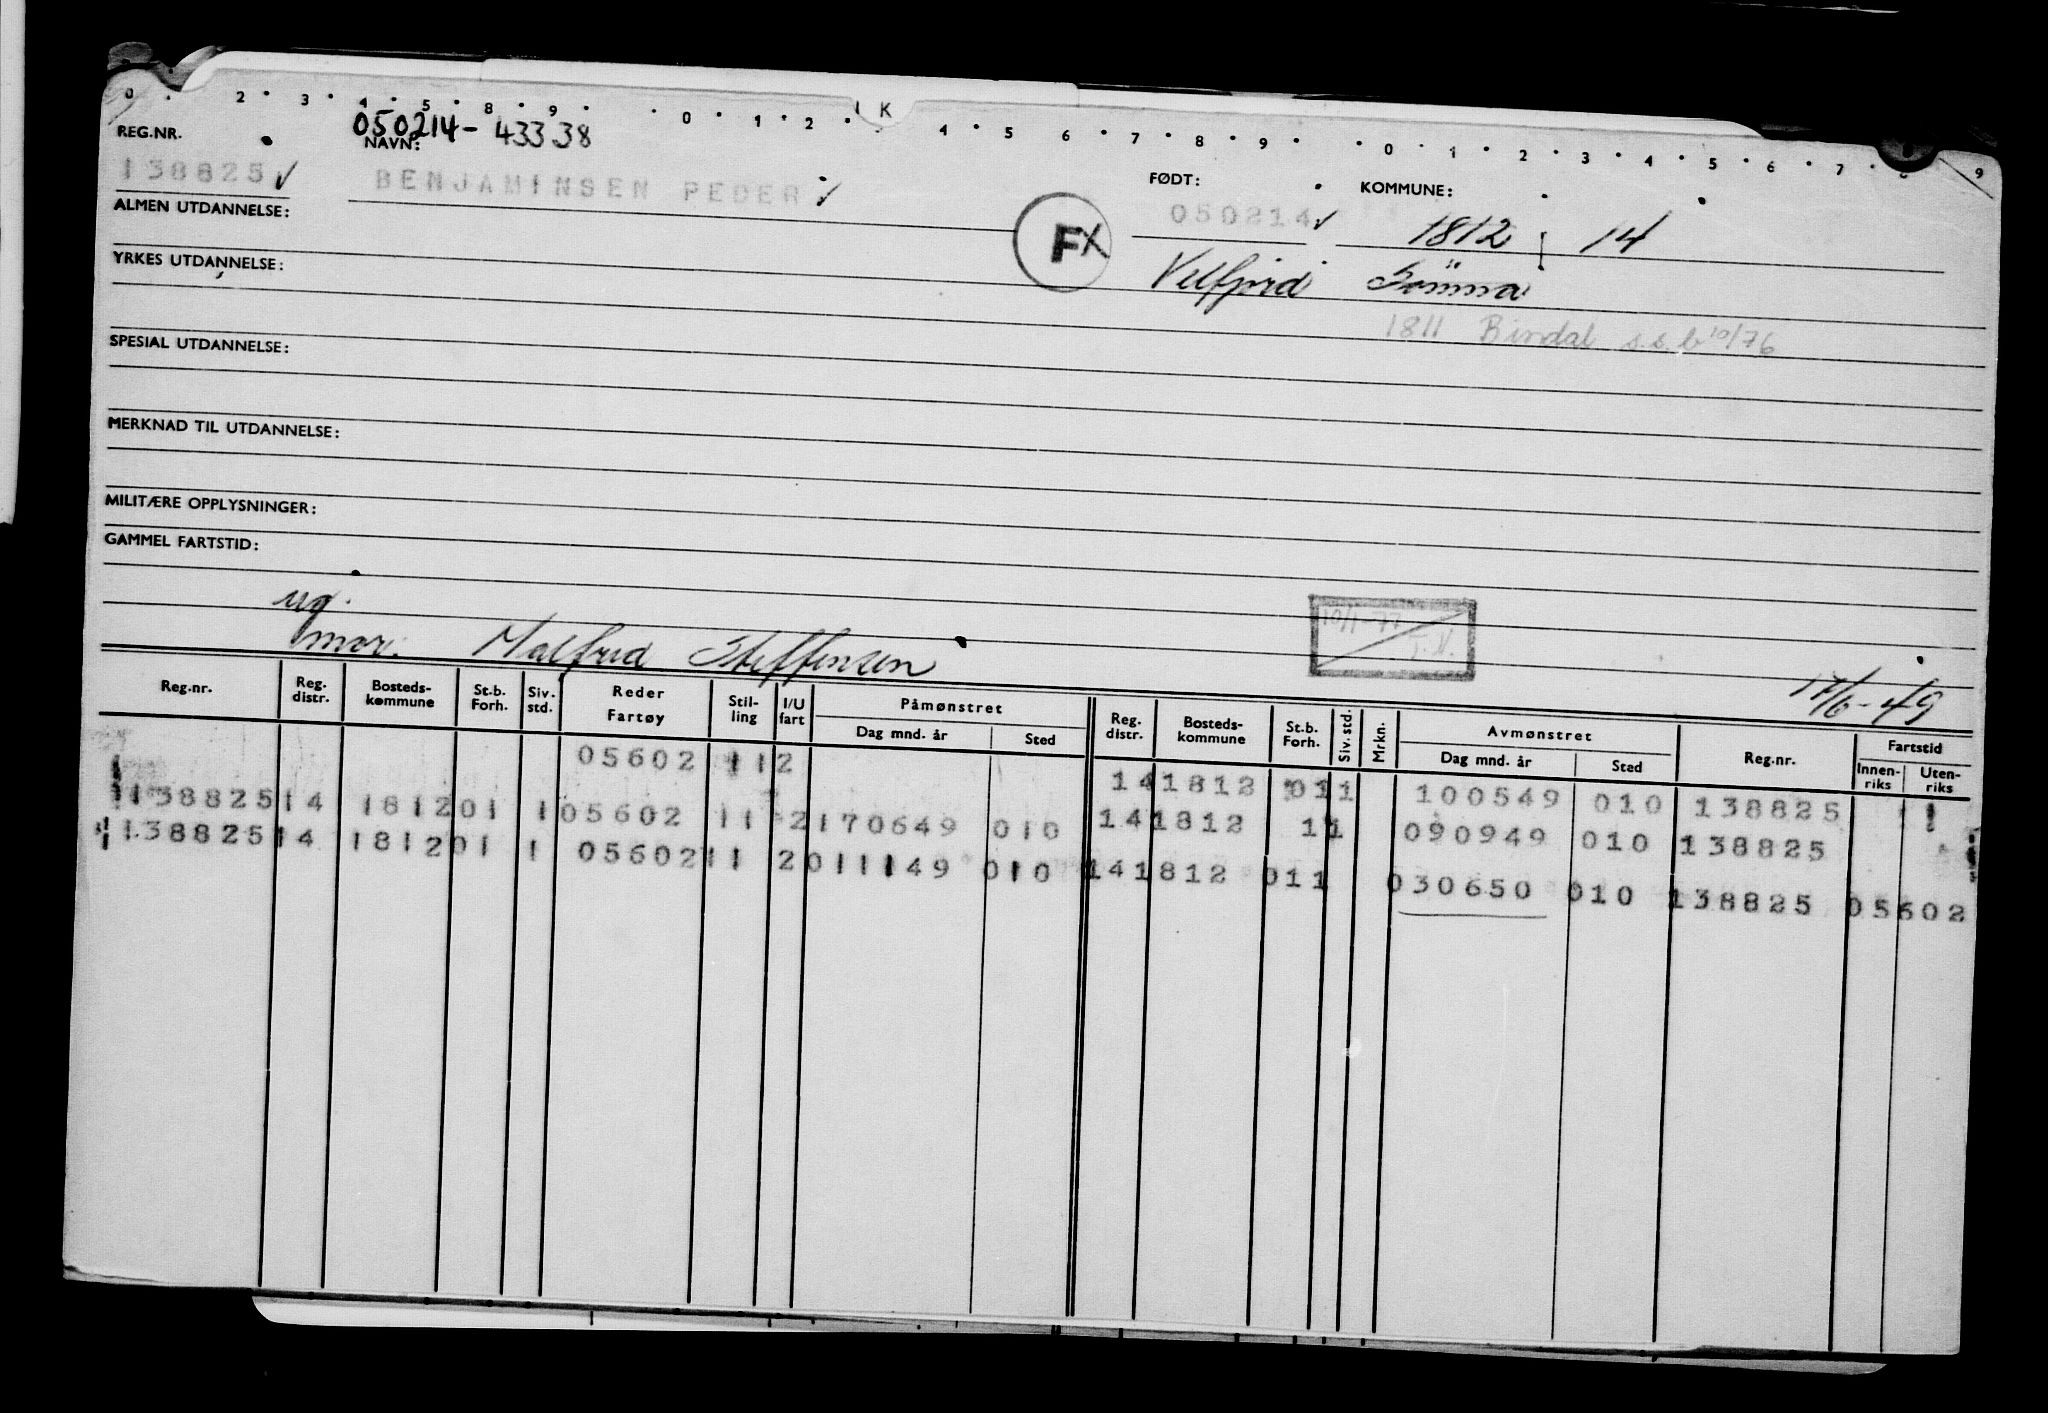 0 2 3 4 5 8 9 0 1 2 K 4 5 6 7 8 9 0 1 2 3 4 5 6 7 9
050214-43338
REG.NR. NAVN: FØDT: KOMMUNE:
138825 ✓ BENJAMINSEN PEDER ✓ 050214 ✓ 1812 14
ALMEN UTDANNELSE: FX
YRKES UTDANNELSE: Velfjord Sömna
1811 Bindal s.s.b 10/76
SPESIAL UTDANNELSE:
MERKNAD TIL UTDANNELSE:
MILITÆRE OPPLYSNINGER:
GAMMEL FARTSTID:
ug. 10/1-77
mor. Malfrid Steffensen
17/6-49
Reg.nr. Reg. distr. Bosteds-kommune St.b. Forh. Siv. std. Reder Fartøy Stil-ling I/U fart Påmønstret Dag mnd. år Sted Reg. distr. Bosteds-kommune St.b. Forh. Siv. std. Mrkn. Avmønstret Dag mnd. år Sted Reg.nr. Fartstid Innen-riks Uten-riks
05602 11 2 14 1812 01 1 100549 010 138825
138825 14 1812 01 1 05602 11 2 170649 010 14 1812 1 1 090949 010 138825
138825 14 1812 01 1 05602 11 2 011149 010 14 1812 01 1 030650 010 138825 05602